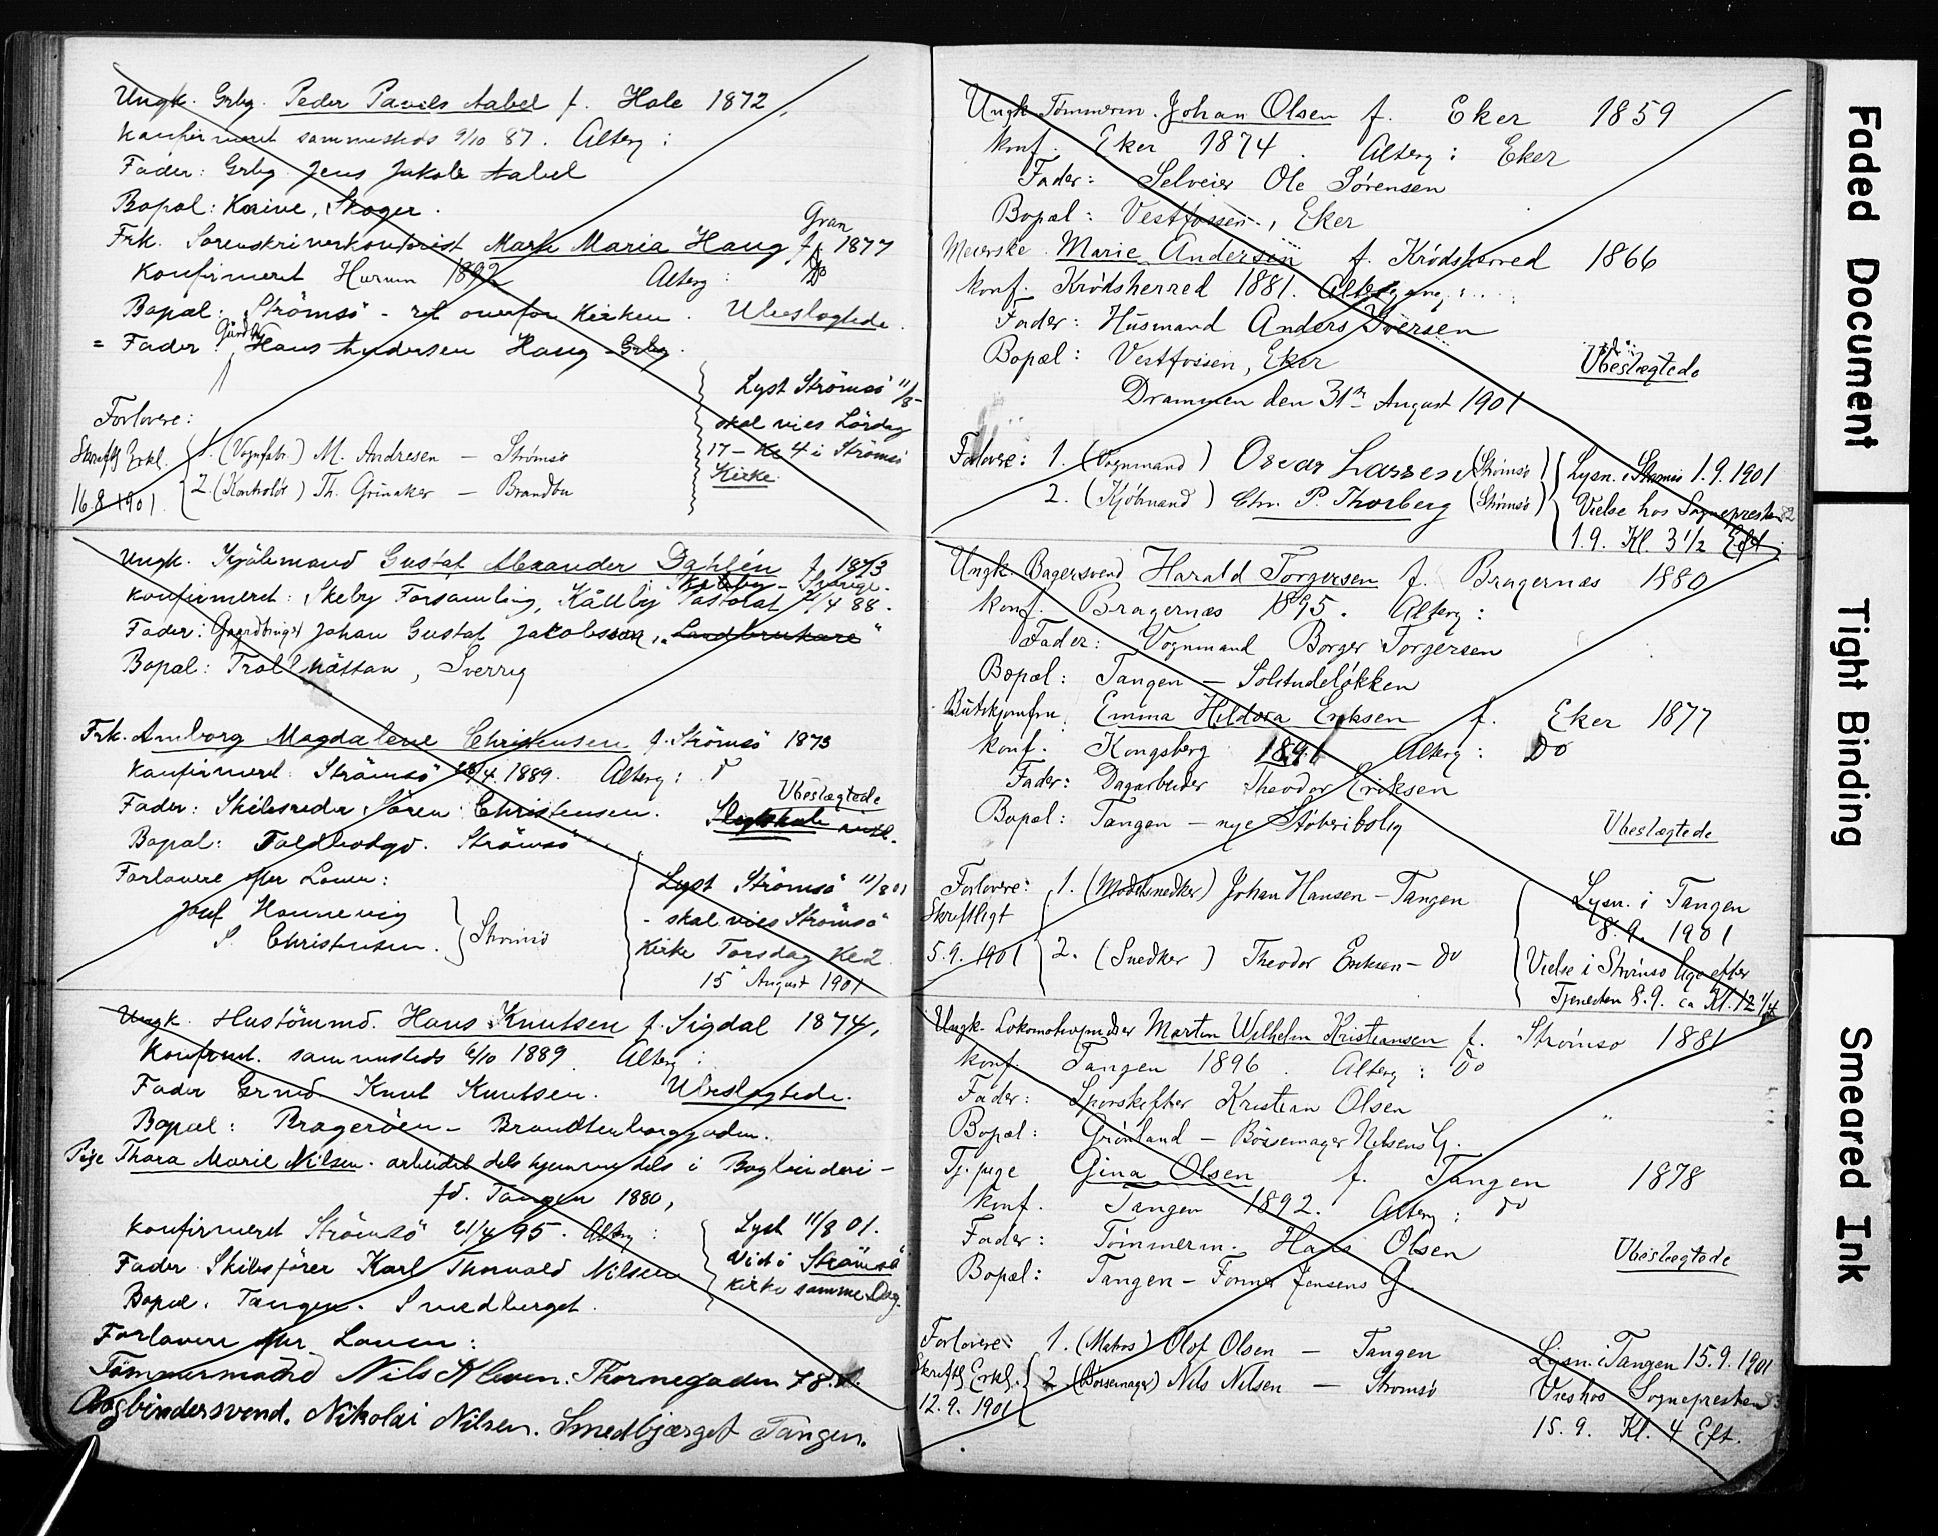 Ungk. Grbg. Peder Pavels Aabel f. Hole 1872.
Konfirmeret sammesteds 9/10 87. Alterg:
Fader: Grbg. Jens Jakob Aabel
Bopæl: Knive, Skoger.
Gran
Frk. Sorenskriverkontorist Marte Maria Haug f. 1877
Konfirmeret Hurum 1892 Alterg: Do
Bopæl: Strömsö - ret overfor Kirken. Ubeslægtede.
= Fader: Gårdbr Hans Andersen Haug - Grbg.
Lyst Strömsö 11/8-
skal vies Lördag
17 - Kl 4 i Strömsö
Kirke.
Forlovere:
Skriftlg Erkl. 1. (Vognfabr.) M. Andresen - Strömsö
16.8.1901. 2. (Kontrolör) Th. Grinaker - Brandbu
Ungk. Kjölemand Gustaf Alexander Dahlén f. 1873
Kållby - Sverige.
Konfirmeret: Skeby Forsamling, Kållby Pastorat 21/4 88.
Fader: Gaardbruger Johan Gustaf Jakobsson, "Landbrukare"
Bopæl: Trollhättan, Sverrig
Frk. Amborg Magdalene Christensen f. Strömsö 1873
Konfirmeret: Strömsö 28/4. 1889. Alterg:
Fader: Skibsreder Sören Christensen. Ubeslægtede
Bopæl: Toldbodgd. Strömsö
Forlovere efter Loven:
Josef Hannevig
S. Christensen. Strömsö
Lyst Strömsö 11/8 01
- skal vies Strömsö
Kirke Torsdag Kl 2
15 August 1901
Ungk. Hustömmd. Hans Knutsen f. Sigdal 1874,
Konfirmt. sammesteds 6/10 1889. Alterg:
Fader Grmd Knut Knutsen. Ubeslægtede.
Bopæl: Brageröen - Brandtenborggaden.
Pige Thora Marie Nilsen. arbeidet dels hjemme dels i Bogbinderi -
fd. Tangen 1880,
Konfirmeret Strömsö 21/4 95. Alterg:
Fader Skibsförer Karl Thorvald Nilsen
Bopæl. Tangen. Smedberget.
Lyst 11/8 01.
Vidt i Strömsö
kirke samme Dag.
Forlovere efter Loven:
Tömmermand Nils Aleven. Thornegaden 78.
Bogbindersvend. Nikolai Nilsen. Smedbjærget Tangen.
Ungk. Tømmerm. Johan Olsen f. Eker 1859
Konf. Eker 1874. Alterg: Eker
Fader: Selveier Ole Sørensen
Bopæl: Vestfossen, Eker
Meierske Marie Andersen f. Krødsherred 1866
Konf. Krødsherred 1881. Altergang:
Fader: Husmand Anders Iversen
Bopæl: Vestfossen, Eker Ubeslægtede
Drammen den 31te August 1901
Forlovere: 1. (Vognmand) Oscar Larsen (Strømsø)
2. (Kjøbmand) Chr. P. Thorberg (Strømsø)
Lysn. i Strømsø 1.9.1901
Vielse hos Sognepresten
1.9. Kl. 3 1/2 Eft.
Ungk. Bagersvend Harald Torgersen f. Bragernæs 1880
Konf. Bragernæs 1895. Alterg:
Fader: Vognmand Borger Torgersen
Bopæl: Tangen - Solitudeløkken
Butikjomfru Emma Heldora Eriksen f. Eker 1877
Konf. Kongsberg 1891 Alterg: Do
Fader: Dagarbeider Theodor Eriksen
Bopæl: Tangen - nye Støberibolig Ubeslægtede
Forlovere: 1. (Modelsnedker) Johan Hansen - Tangen
Skriftligt
5.9.1901 2. (Snedker) Theodor Eriksen - do
Lysn. i Tangen
8.9. 1901
Vielse i Strømsø lige efter
Tjenesten 8.9. ca Kl. 12 1/4
Ungk. Lokomotivpudser Martin Wilhelm Kristiansen f. Strømsø 1881
Konf. Tangen 1896. Alterg: Do
Fader: Sporskifter Kristian Olsen
Bopæl: Grønland - Børsemager Nilsens G.
Tj.pige Gina Olsen f. Tangen 1878
Konf. Tangen 1892. Alterg: do
Fader: Tømmerm. Hans Olsen
Bopæl: Tangen - Former Jensens G. Ubeslægtede
Forlovere: 1. (Matros) Olof Olsen - Tangen
Skriftlg Erkl. 2. (Børsemager) Nils Nilsen - Strømsø
12.9.1901
Lysn. i Tangen 15.9.1901
Vies hos Sognepresten
15.9. Kl. 4 Eft.
Faded Document
Tight Binding
Smeared Ink